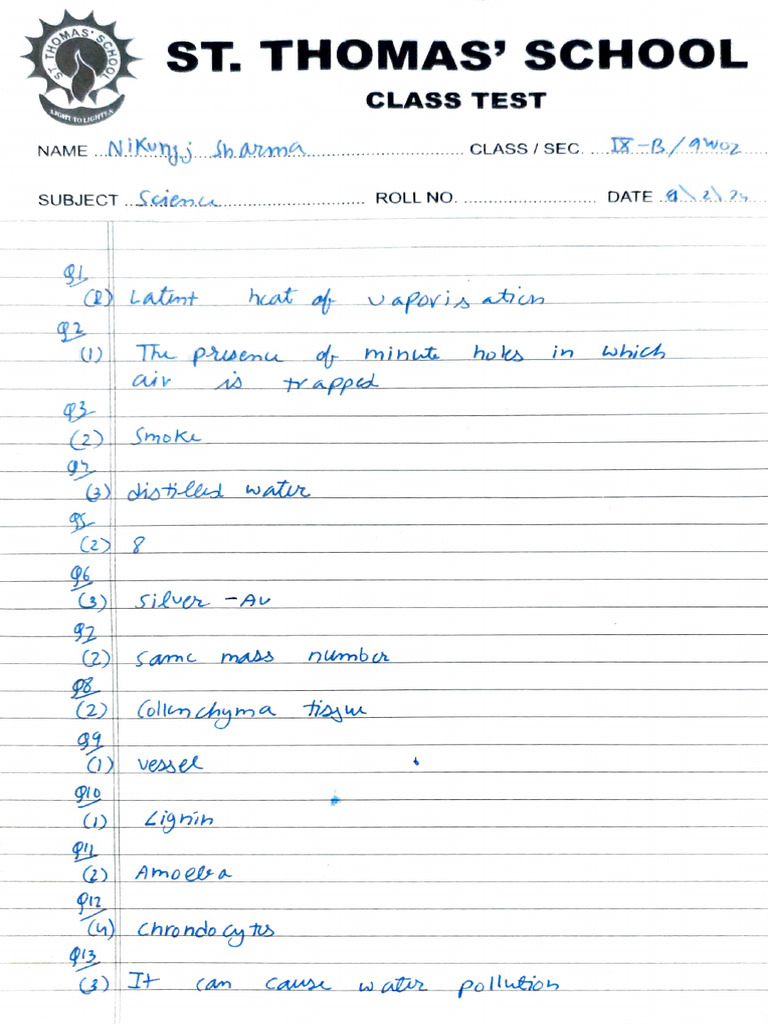 ST THOMAS' SCHOOL
LIGHT TO LIGHTEN
ST. THOMAS' SCHOOL
CLASS TEST
NAME Nikunjj Sharma CLASS / SEC. IX-B/9W02
SUBJECT Science ROLL NO. DATE
Q1
(2) Latent heat of vaporisation
Q2
(1) The presence of minute holes in which
air is trapped
Q3
(2) Smoke
Q4
(3) distilled water
Q5
(2) 8
Q6
(3) Silver - Au
Q7
(2) same mass number
Q8
(2) Collenchyma tissue
Q9
(1) vessel
Q10
(1) Lignin
Q11
(2) Amoeba
Q12
(4) Chrondocytes
Q13
(3) It can cause water pollution